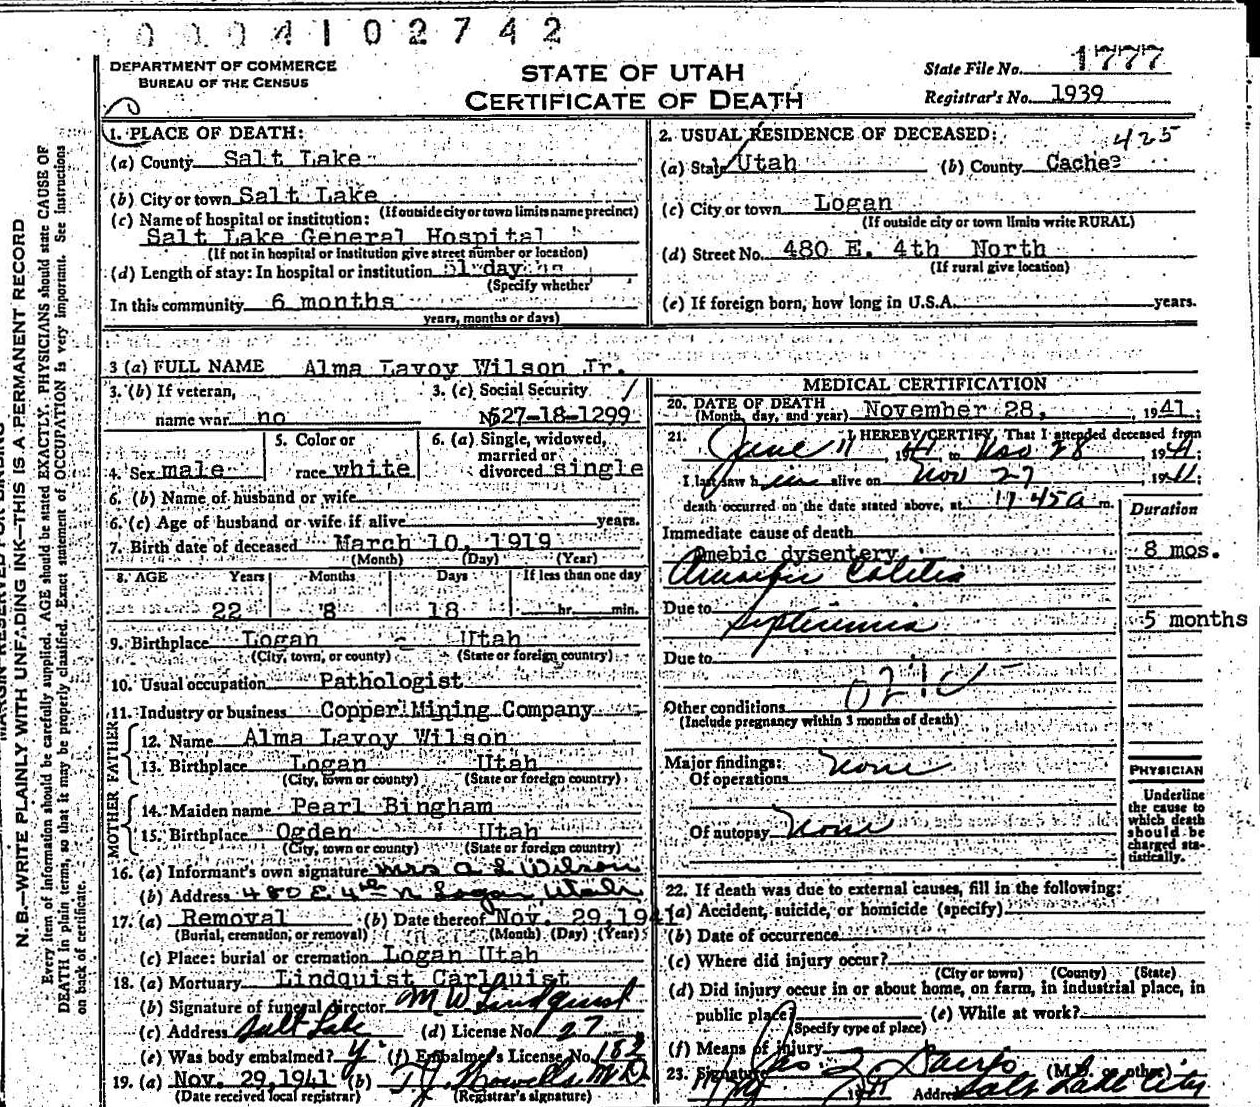 0004102742
DEPARTMENT OF COMMERCE
BUREAU OF THE CENSUS
STATE OF UTAH
CERTIFICATE OF DEATH
State File No. 1777
Registrar's No. 1939
1. PLACE OF DEATH:
(a) County Salt Lake
(b) City or town Salt Lake
(If outside city or town limits name precinct)
(c) Name of hospital or institution:
Salt Lake General Hospital
(If not in hospital or institution give street number or location)
(d) Length of stay: In hospital or institution
(Specify whether
In this community 6 months
years, months or days)
2. USUAL RESIDENCE OF DECEASED: 425
(a) State Utah (b) County Cache
(c) City or town Logan
(If outside city or town limits write RURAL)
(d) Street No. 480 E. 4th North
(If rural give location)
(e) If foreign born, how long in U.S.A. years.
3 (a) FULL NAME Alma Lavoy Wilson Jr.
3. (b) If veteran,
name war no
3. (c) Social Security
No 527-18-1299
4. Sex male
5. Color or
race white
6. (a) Single, widowed,
married or
divorced single
6. (b) Name of husband or wife
6. (c) Age of husband or wife if alive years.
7. Birth date of deceased March 10, 1919
(Month) (Day) (Year)
8. AGE Years Months Days If less than one day
22 8 18 hr. min.
9. Birthplace Logan - Utah
(City, town, or county) (State or foreign country)
10. Usual occupation Pathologist
11. Industry or business Copper Mining Company
FATHER
12. Name Alma Lavoy Wilson
13. Birthplace Logan Utah
(City, town or county) (State or foreign country)
MOTHER
14. Maiden name Pearl Bingham
15. Birthplace Ogden Utah
(City, town or county) (State or foreign country)
16. (a) Informant's own signature Mrs A L Wilson
(b) Address 480 E 4th N Logan, Utah
17. (a) Removal (b) Date thereof Nov. 29, 1941
(Burial, cremation, or removal) (Month) (Day) (Year)
(c) Place: burial or cremation Logan Utah
18. (a) Mortuary Lindquist Carlquist
(b) Signature of funeral director M W Lindquist
(c) Address Salt Lake (d) License No. 27
(e) Was body embalmed? Y (f) Embalmer's License No. 182
19. (a) Nov. 29, 1941 (b) T J Howells M D
(Date received local registrar) (Registrar's signature)
MEDICAL CERTIFICATION
20. DATE OF DEATH
(Month, day, and year) November 28, 1941;
21. I HEREBY CERTIFY, That I attended deceased from
June 11, 1941 to Nov 28, 1941;
I last saw him alive on Nov 27, 1941;
death occurred on the date stated above, at 11 45 a m.
Duration
Immediate cause of death
Amebic dysentery 8 mos.
Colitis
Due to Septicemia 5 months
Due to
Other conditions
(Include pregnancy within 3 months of death)
Major findings:
Of operations none
Of autopsy None
PHYSICIAN
Underline
the cause to
which death
should be
charged sta-
tistically.
22. If death was due to external causes, fill in the following:
(a) Accident, suicide, or homicide (specify)
(b) Date of occurrence
(c) Where did injury occur?
(City or town) (County) (State)
(d) Did injury occur in or about home, on farm, in industrial place, in
public place? (e) While at work?
(Specify type of place)
(f) Means of injury
23. Signature (M.D. or other)
Address Salt Lake City
N. B.—WRITE PLAINLY WITH UNFADING INK—THIS IS A PERMANENT RECORD
Every item of information should be carefully supplied. AGE should be stated EXACTLY. PHYSICIANS should state CAUSE OF
DEATH in plain terms, so that it may be properly classified. Exact statement of OCCUPATION is very important. See instructions
on back of certificate.